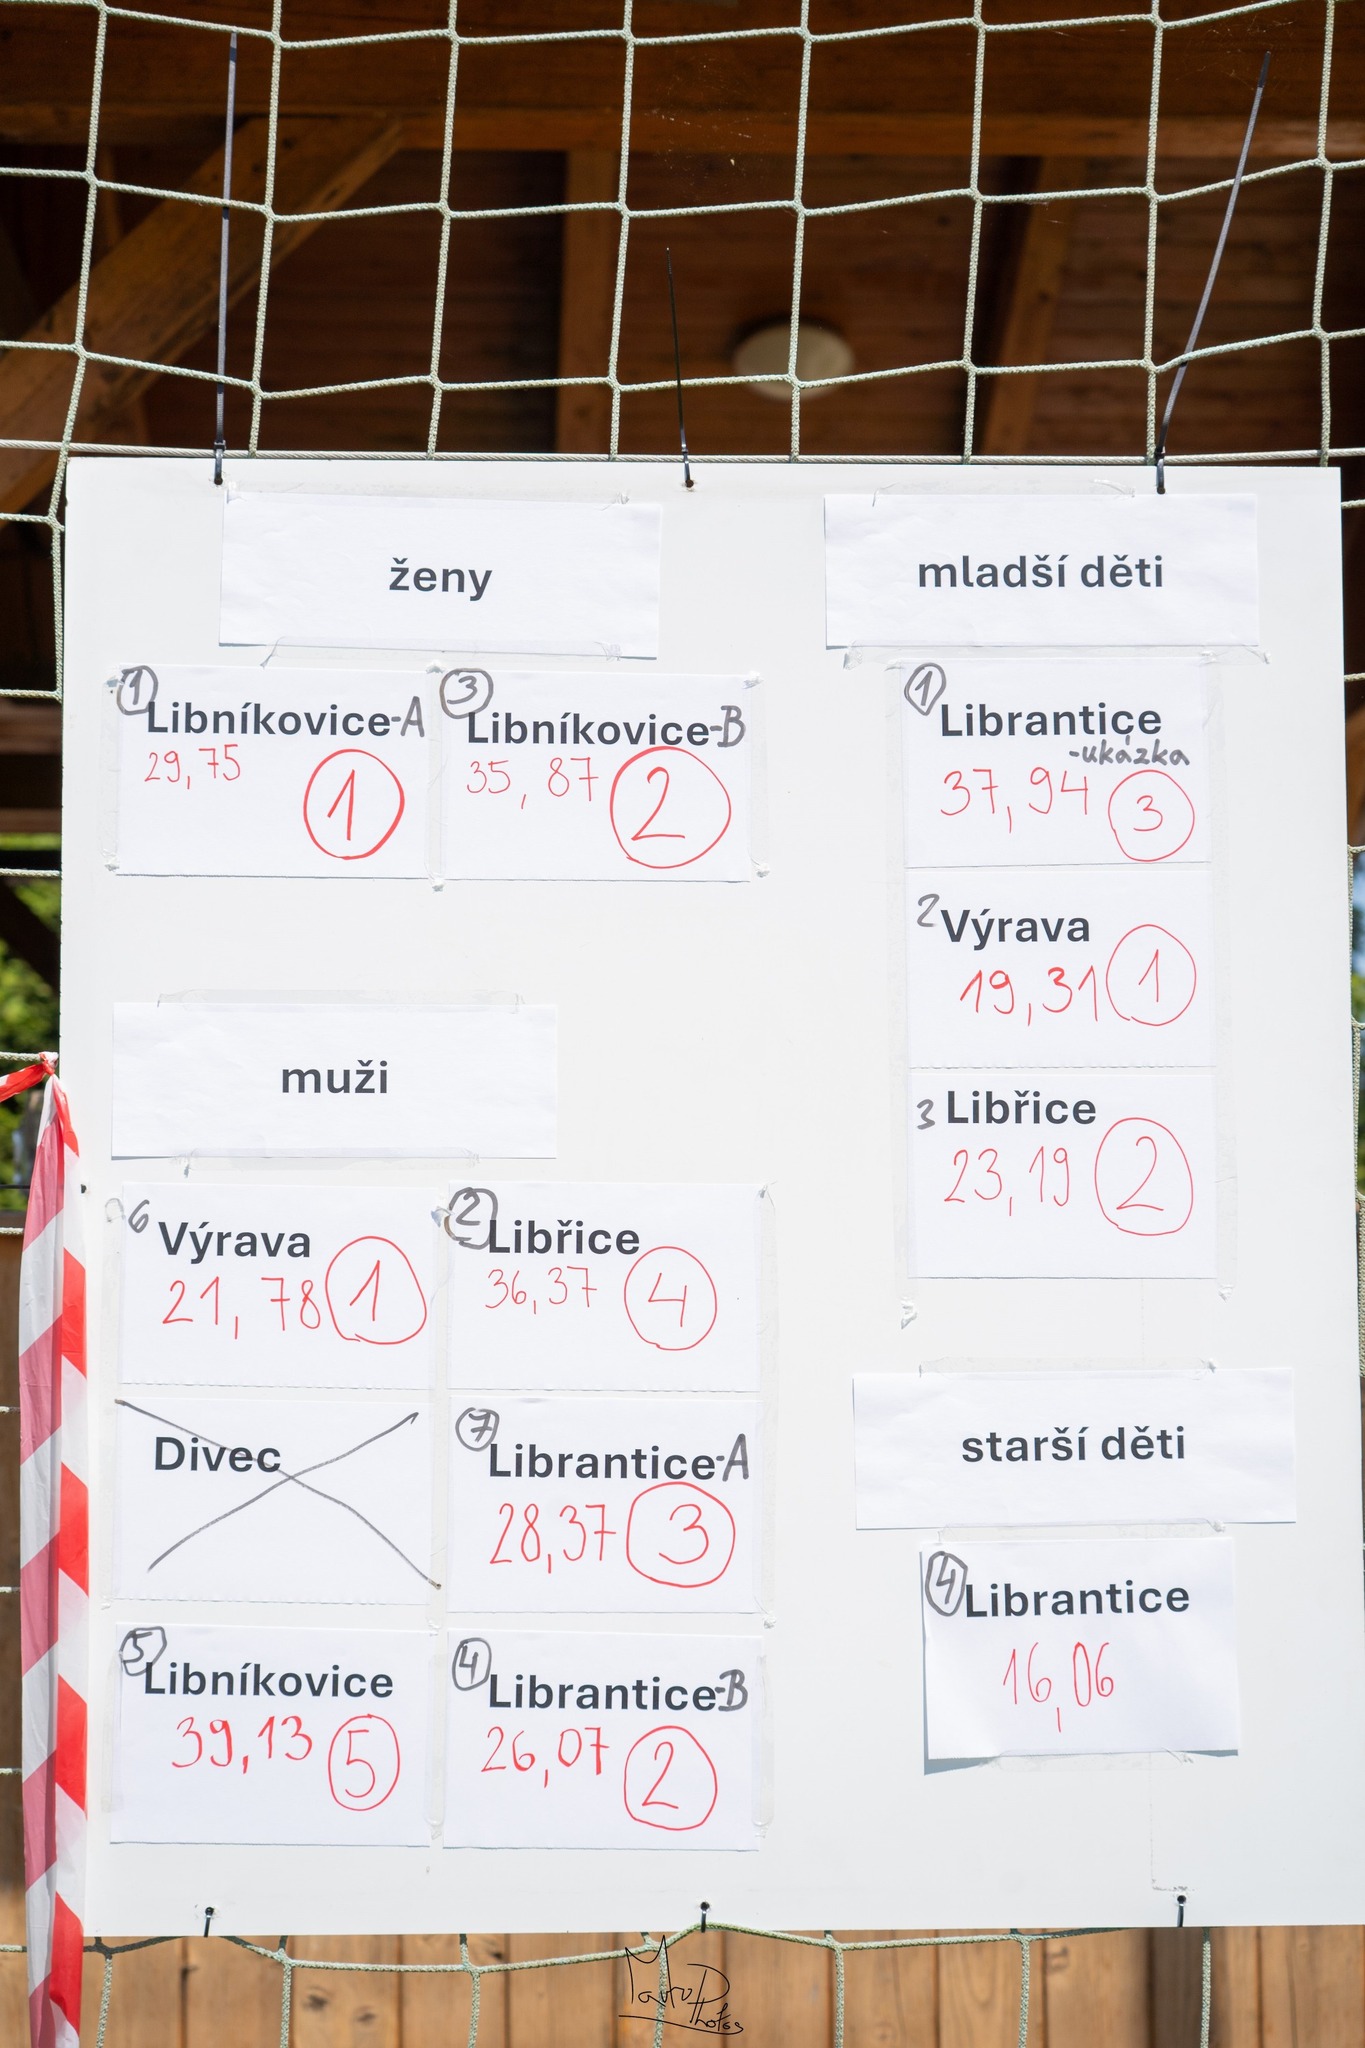 ženy
1
Libníkovice-A
29,75
1
3
Libníkovice-B
35,87
2
muži
6
Výrava
21,78
1
2
Libřice
36,37
4
Divec
7
Librantice-A
28,37
3
5
Libníkovice
39,13
5
4
Librantice-B
26,07
2
mladší děti
1
Librantice
-ukázka
37,94
3
2
Výrava
19,31
1
3
Libřice
23,19
2
starší děti
4
Librantice
16,06